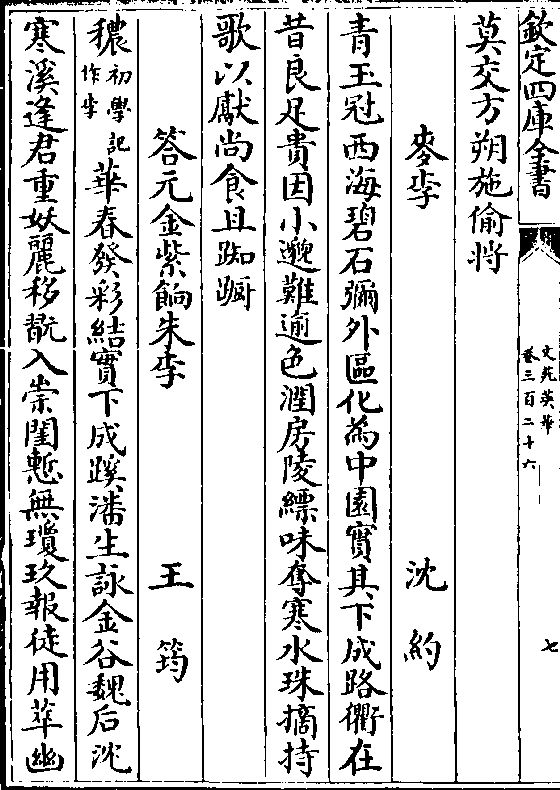 欽定四庫全書
文苑英華
卷三百二十六
七
莫交方朔施偷將
麥李 沈約
青玉冠西海碧石彌外區化為中園實其下成路衢在
昔良足貴因小邈難逾色潤房陵縹味奪寒水珠摘持
歌以獻尚食且踟蹰
答元金紫餉朱李 王筠
穠初學記作李華春發彩結實下成蹊潘生詠金谷魏后沈
寒溪逢君重妖麗移翫入崇閨慙無瓊玖報徒用萃幽